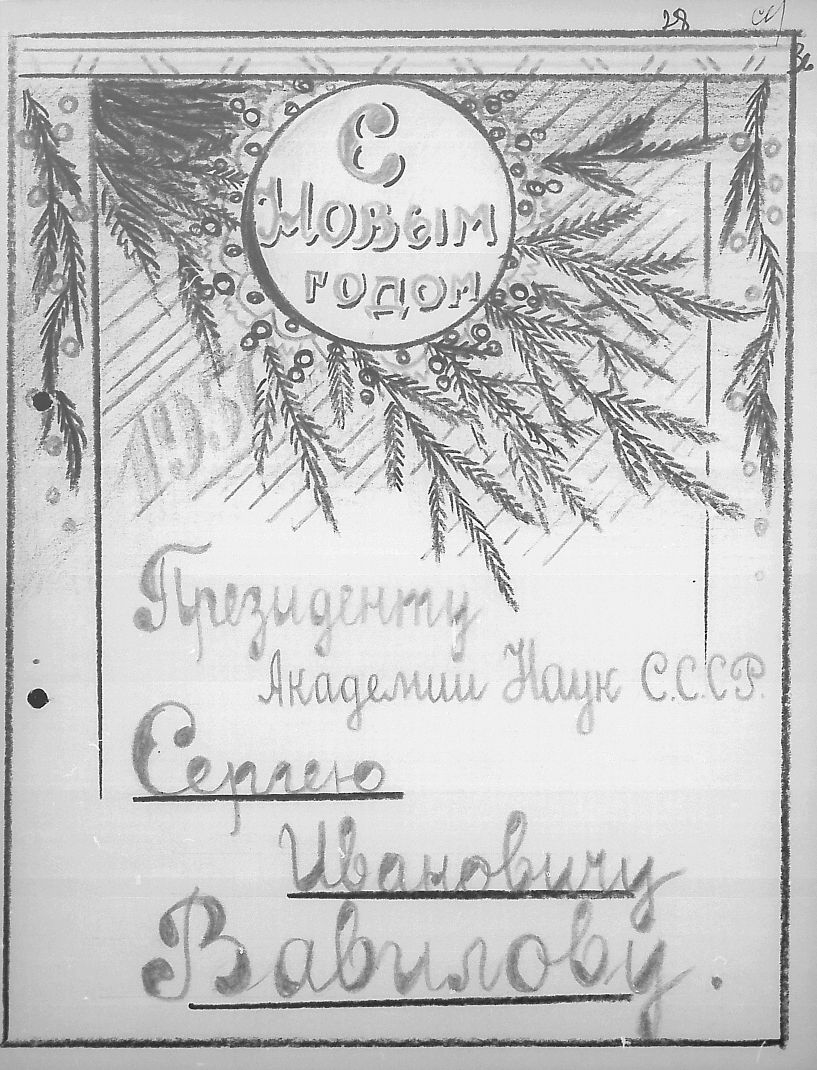 28
С
Новым
годом
Президенту
Академии Наук С.С.С.Р.
Сергею
Ивановичу
Вавилову.